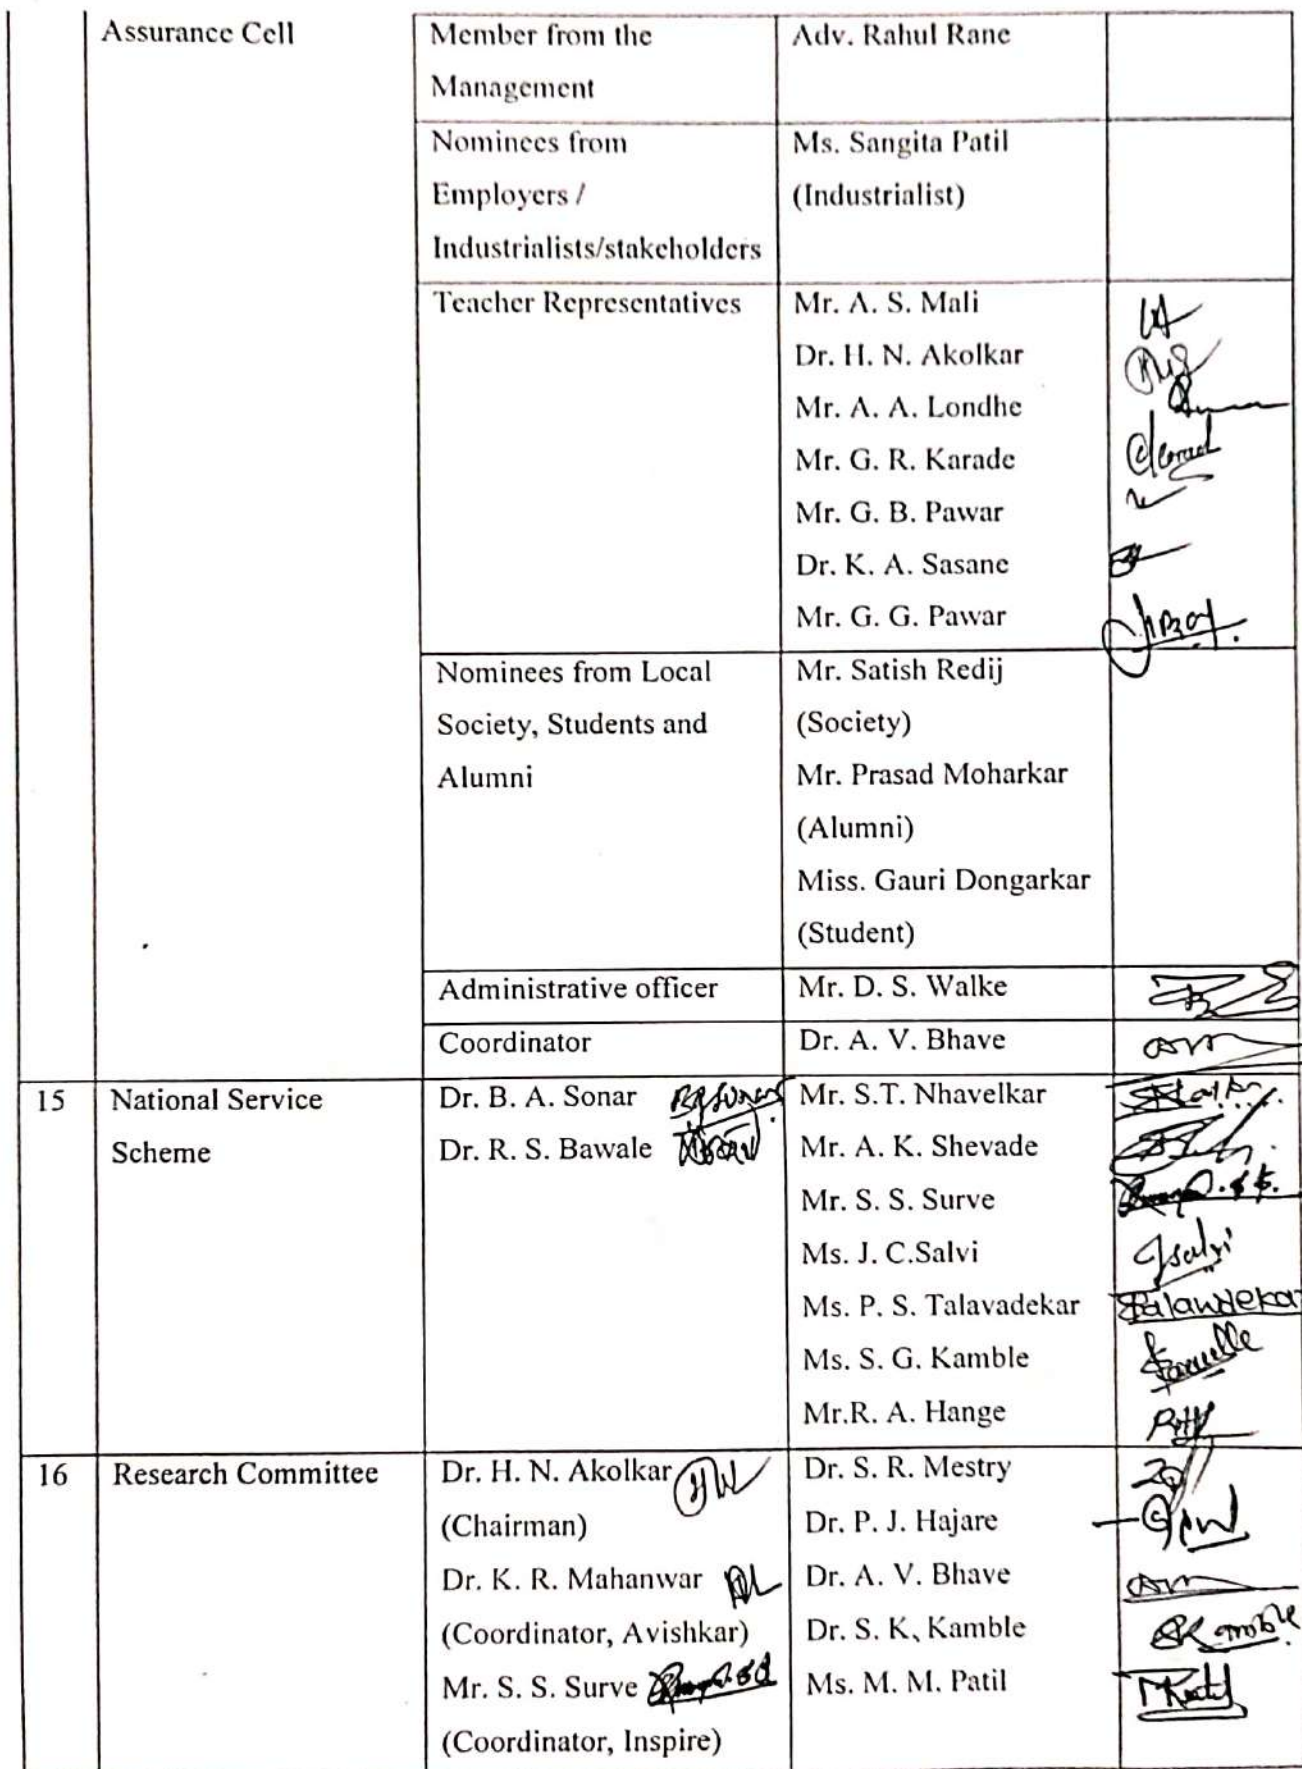 Assurance Cell
Member from the
Management
Adv. Rahul Rane
Nominees from
Employers /
Industrialists/stakeholders
Ms. Sangita Patil
(Industrialist)
Teacher Representatives
Mr. A. S. Mali
Dr. H. N. Akolkar
Mr. A. A. Londhe
Mr. G. R. Karade
Mr. G. B. Pawar
Dr. K. A. Sasane
Mr. G. G. Pawar
Nominees from Local
Society, Students and
Alumni
Mr. Satish Redij
(Society)
Mr. Prasad Moharkar
(Alumni)
Miss. Gauri Dongarkar
(Student)
Administrative officer
Mr. D. S. Walke
Coordinator
Dr. A. V. Bhave
15
National Service
Scheme
Dr. B. A. Sonar
Dr. R. S. Bawale
Mr. S.T. Nhavelkar
Mr. A. K. Shevade
Mr. S. S. Surve
Ms. J. C.Salvi
Ms. P. S. Talavadekar
Ms. S. G. Kamble
Mr.R. A. Hange
16
Research Committee
Dr. H. N. Akolkar
(Chairman)
Dr. K. R. Mahanwar
(Coordinator, Avishkar)
Mr. S. S. Surve
(Coordinator, Inspire)
Dr. S. R. Mestry
Dr. P. J. Hajare
Dr. A. V. Bhave
Dr. S. K, Kamble
Ms. M. M. Patil